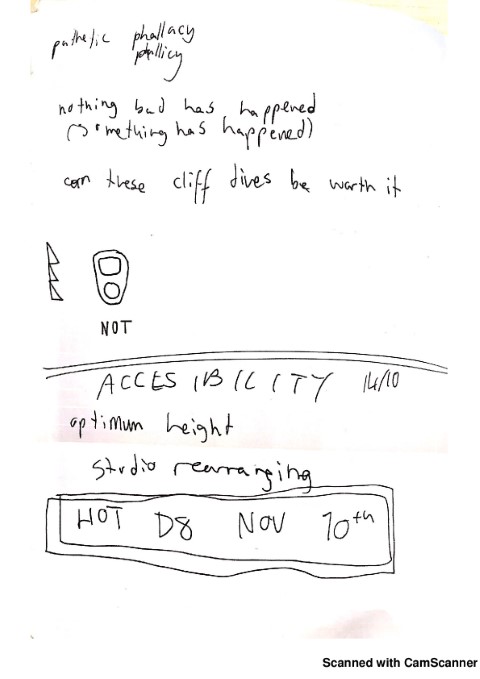 pathetic phallacy
phallicy
nothing bad has happened
(something has happened)
can these cliff dives be worth it
NOT
ACCESSIBILITY 14/10
optimum height
studio rearranging
HOT D8 NOV 10th
Scanned with CamScanner